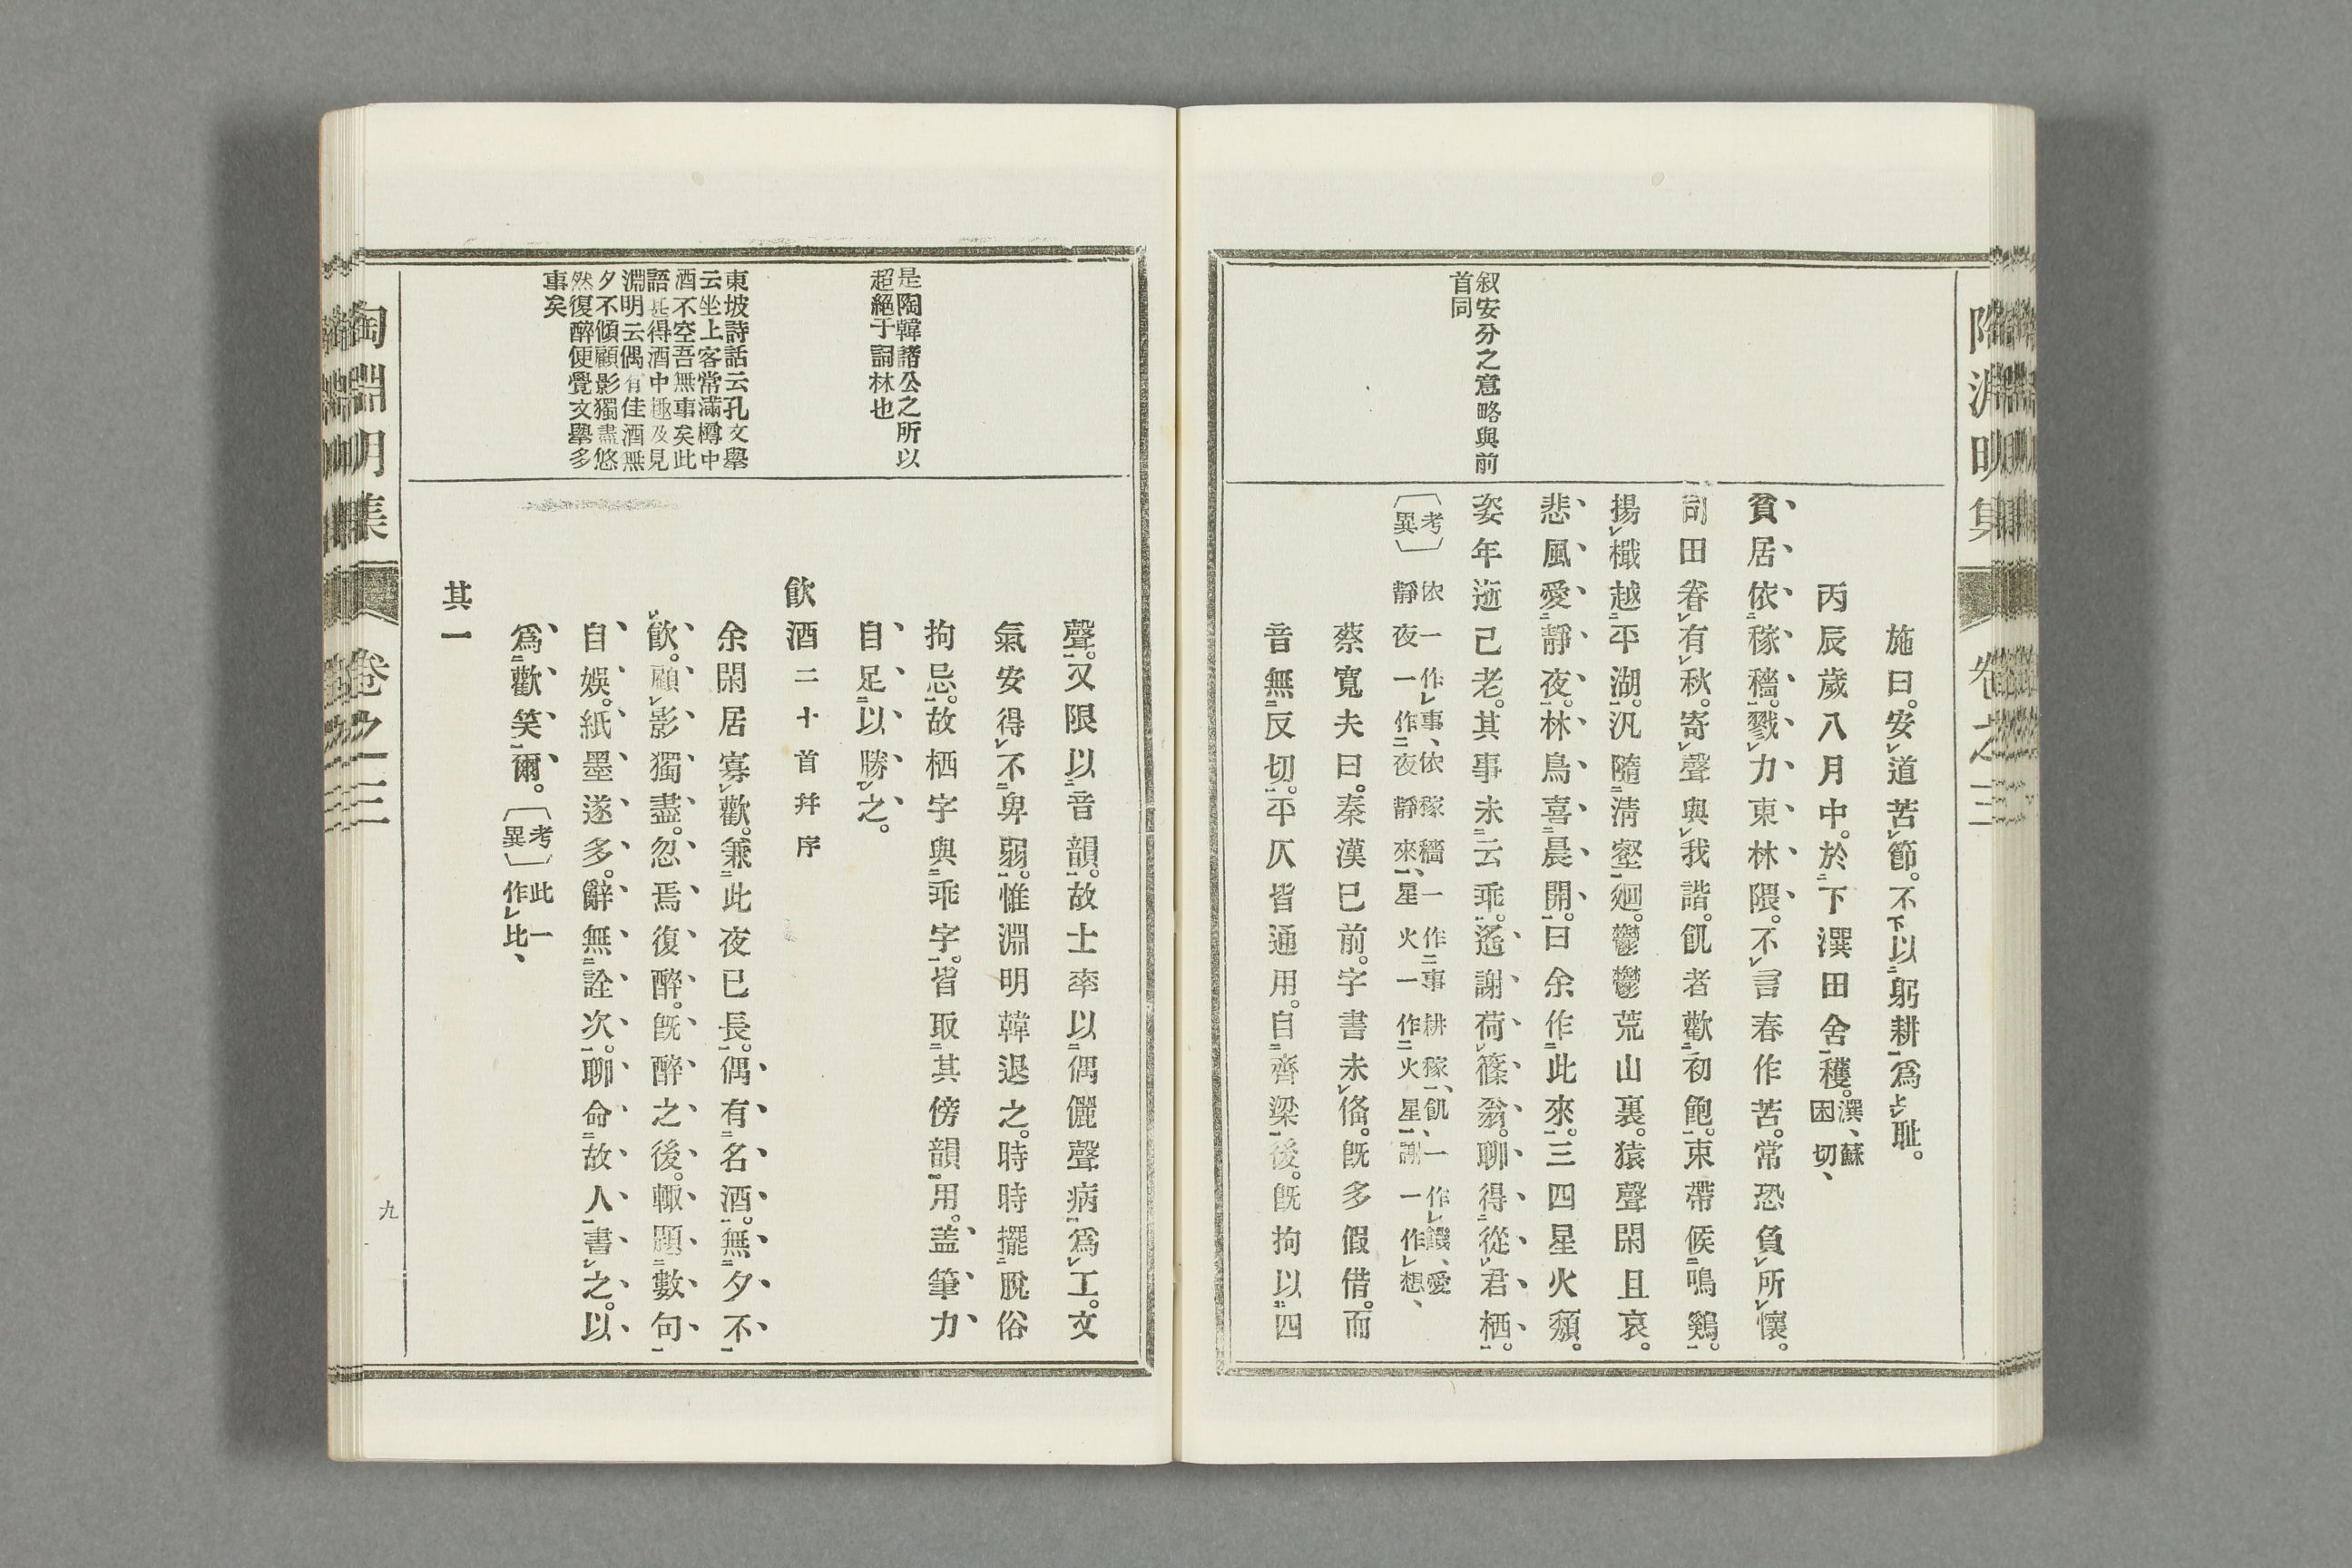 陶淵明集 卷之三
叙安分之意略與前
首同
施曰。安道苦節。不以躬耕爲耻。
丙辰歲八月中。於下潠田舍穫。潠、蘇困切、
貧居依稼穡。戮力東林隈。不言春作苦。常恐負所懷。
司田眷有秋。寄聲與我諧。飢者歡初飽。束帶候鳴鷄。
揚檝越平湖。汎隨淸壑廻。鬱鬱荒山裏。猿聲閑且哀。
悲風愛靜夜。林鳥喜晨開。曰余作此來。三四星火頹。
姿年逝已老。其事未云乖。遙謝荷篠翁。聊得從君栖。
〔考異〕依一作事、依稼穡一作事耕稼、飢、一作饑、愛
靜夜一作夜靜來、星火一作火星、謝一作想、
蔡寬夫曰。秦漢已前。字書未俻。旣多假借。而
音無反切。平仄皆通用。自齊梁後。旣拘以四
是陶韓諸公之所以
超絕于詞林也
東坡詩話云孔文擧
云坐上客常滿樽中
酒不空吾無事矣此
語甚得酒中極及見
淵明云偶有佳酒無
夕不傾顧影獨盡悠
然復醉便覺文擧多
事矣
聲。又限以音韻。故士率以偶儷聲病爲工。文
氣安得不卑弱。惟淵明韓退之。時時擺脫俗
拘忌。故栖字與乖字。皆取其傍韻用。盖筆力
自足以勝之。
飮酒二十首幷序
余閑居寡歡。兼此夜已長。偶有名酒。無夕不
飮。顧影獨盡。忽焉復醉。旣醉之後。輙題數句
自娛。紙墨遂多。辭無詮次。聊命故人書之。以
爲歡笑爾。〔考異〕此一作比、
其一
陶淵明集 卷之三 九